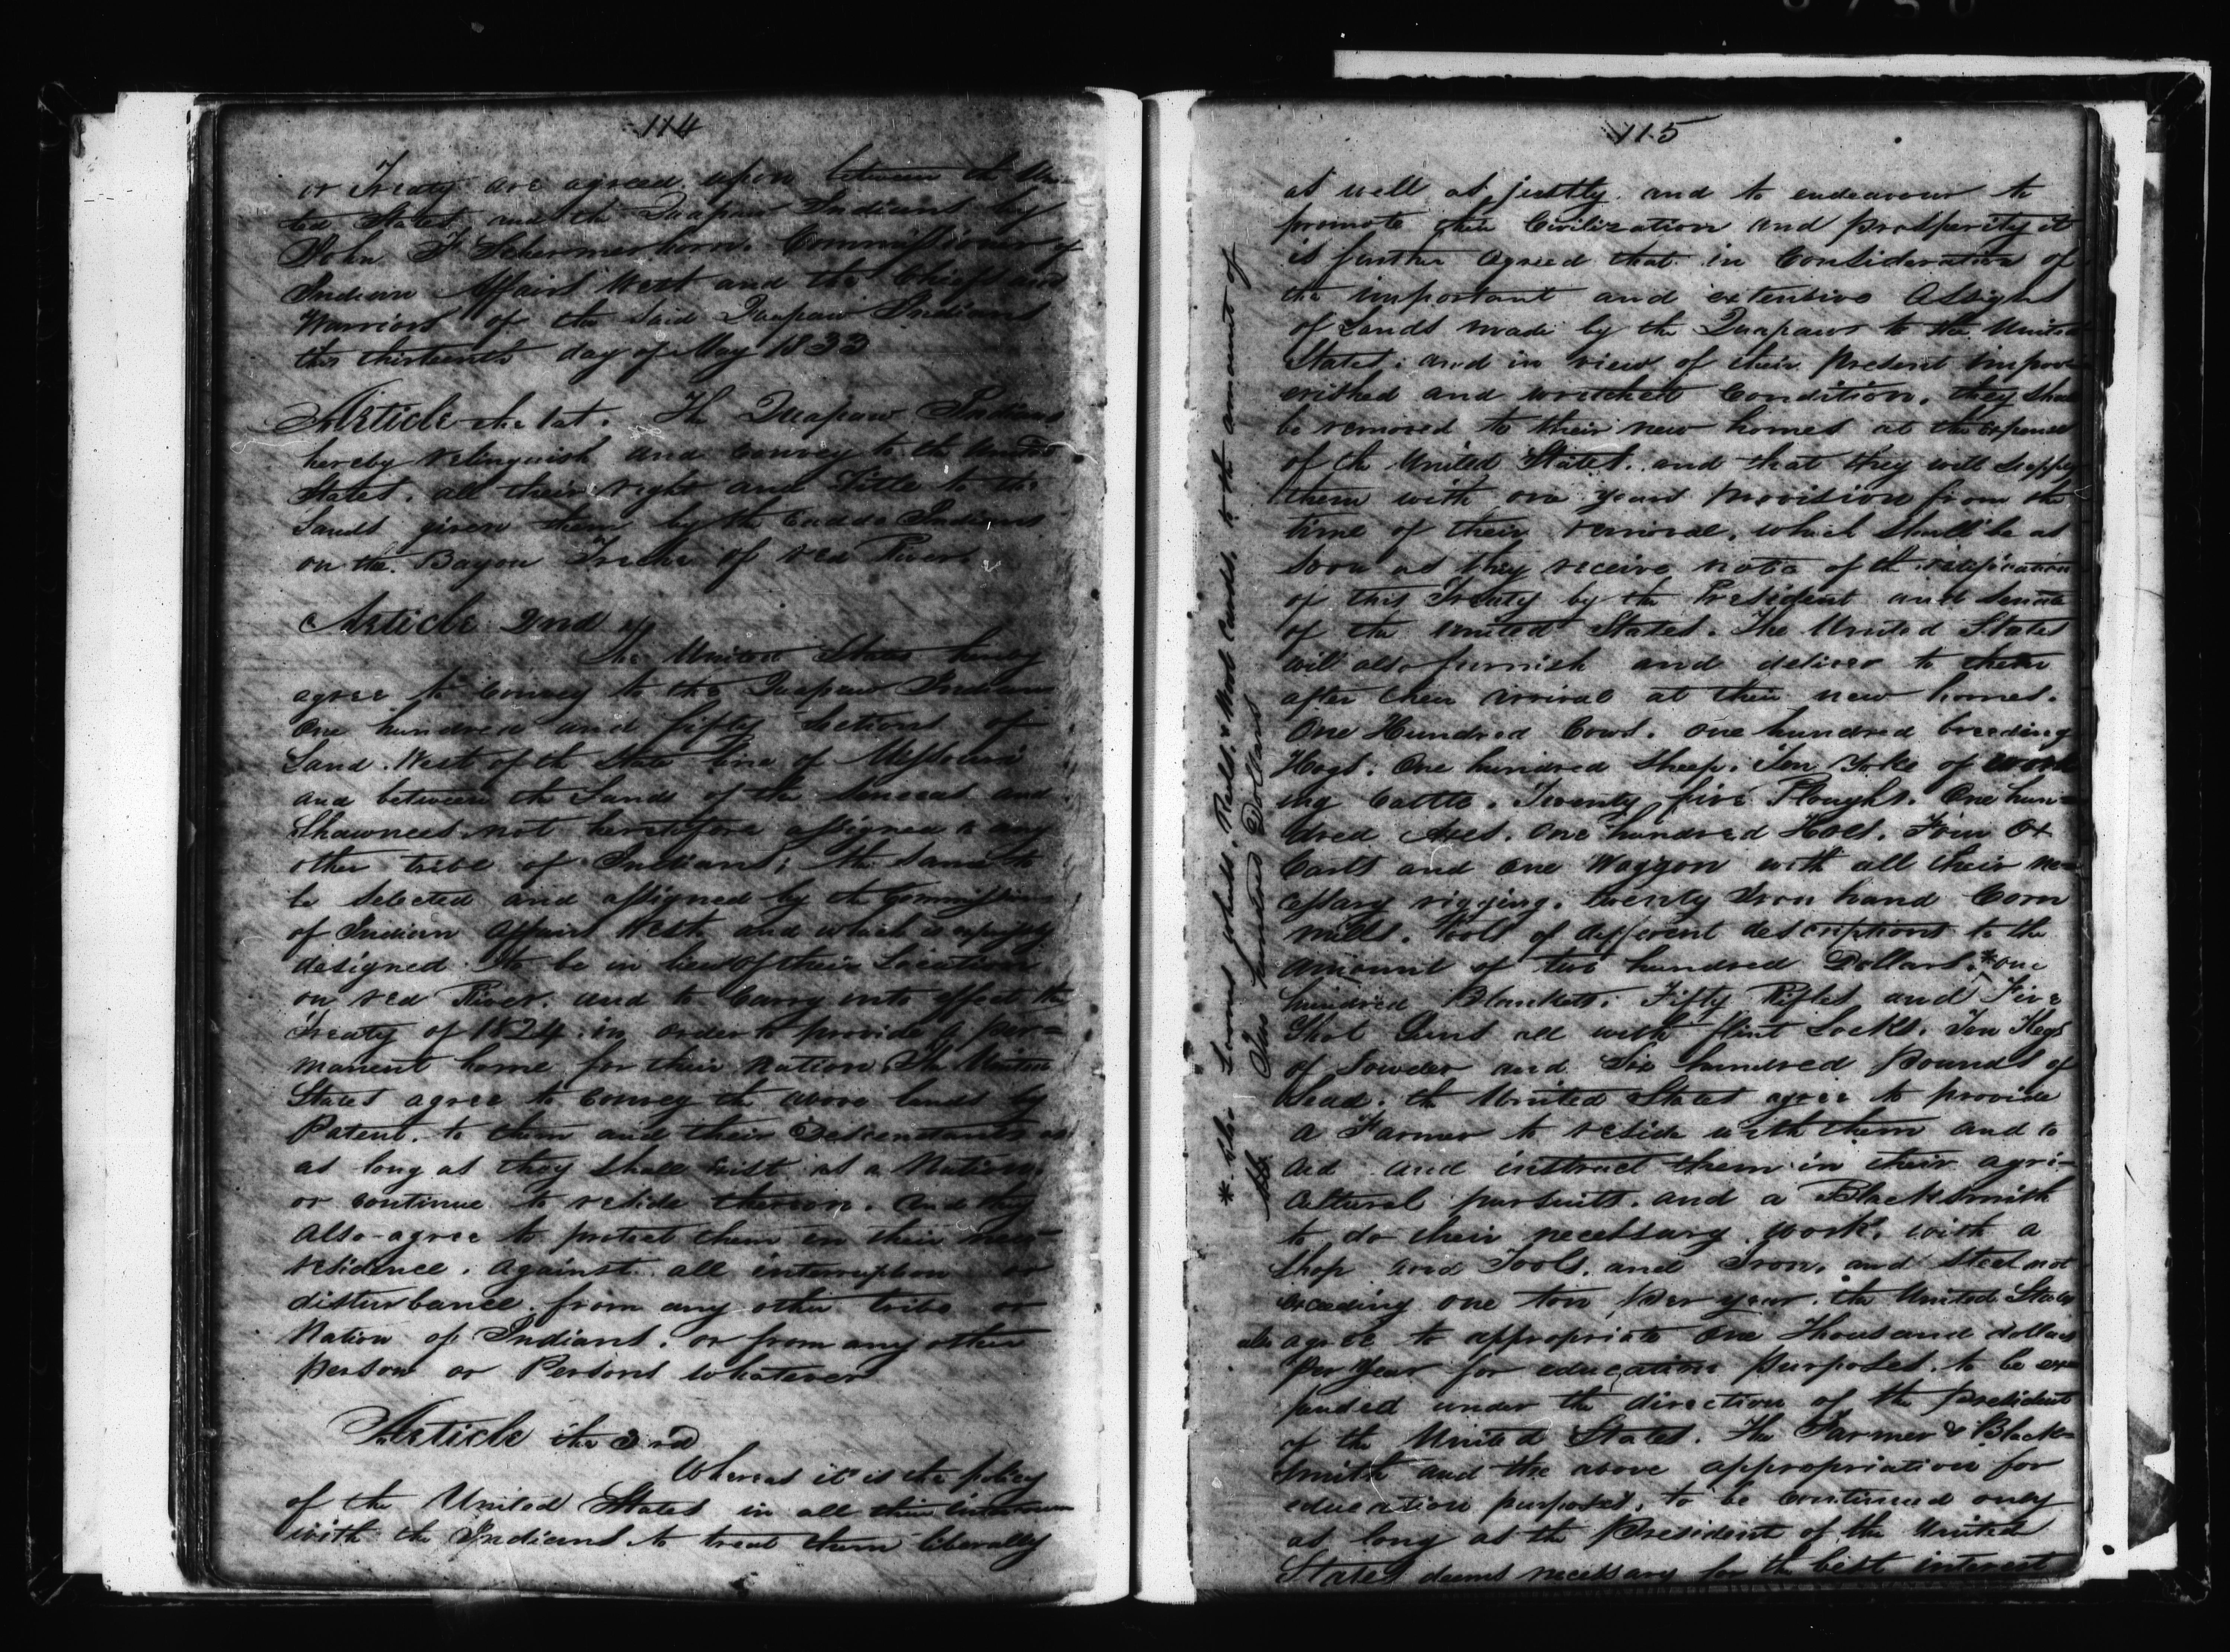 114
or Treaty are agreed upon between the Uni-
ted States and the Quapaw Indians by
John F Schermerhorn. Commissioner of
Indian Affairs West and the Chiefs and
Warriors of the said Quapaw Indians
this thirteenth day of May 1833
Article the 1st. The Quapaw Indians
hereby relinquish and convey to the United
States. all their right and Title to the
Lands given them by the Caddo Indians
on the Bayou Treche of red River.
Article 2nd
The United States hereby
agree to convey to the Quapaw Indians
One hundred and fifty Sections of
Land. West of the State line of Missouri
and between the Lands of the Senecas and
Shawnees. not heretofore assigned to any
other tribe of Indians; the same to
be selected and assigned by the Commissioner
of Indian Affairs West and which is expressly
designed to be in lieu of their Location
on red River. and to carry into effect the
Treaty of 1824. in order to provide a per=
manent home for their Nation. The United
States agree to convey the above lands by
Patent. to them and their Descendants as
as long as they shall exist as a Nation.
or continue to reside thereon. and they
also agree to protect them in their new
residence. against. all interruption or
disturbance. from any other tribe or
Nation of Indians. or from any other
person or Persons whatever
Article the 3rd
Whereas it is the policy
of the United States in all their intercourse
with the Indians to treat them liberally
115
as well as justly. and to endeavour to
promote their Civilization and prosperity it
is further agreed that in Consideration of
the important and extensive Assigns
of Lands made by the Quapaws to the United
States, and in view of their present impov-
erished and wretched Condition. they shall
be removed to their new homes at the expense
of the United States. and that they will supply
them with one years provision from the
time of their removal, which shall be as
soon as they receive note of the ratification
of this Treaty by the President and Senate
of the United States. The United States
will also furnish and deliver to them
after their arrival at their new homes.
One Hundred Cows. one hundred breeding
Hogs. One hundred Sheep. Ten Yoke of work
ing Cattle. Twenty five Ploughs. One hun=
dred Axes. One hundred Hoes. Four Ox
Carts and one Waggon with all their ne=
cessary rigging. twenty Iron hand Corn
mills. Tools of different descriptions to the
amount of two hundred Dollars.* one
hundred Blankets. Fifty Rifles and Five
Shot Guns all with flint Locks. Ten Kegs
of Powder and Six hundred pounds of
Lead. the United States agree to provide
a Farmer to reside with them and to
aid and instruct them in their agri-
cultural pursuits. and a Blacksmith
to do their necessary work. with a
shop and Tools. and Iron. and Steel not
exceeding one ton per year. the United States
also agree to appropriate One Thousand dollars
Per Year for education purposes. to be ex=
pended under the direction of the President
of the United States. The Farmer & Black=
smith and the above appropriation for
education purposes. to be continued only
as long as the President of the United
States deems necessary for the best interest
* Also Looms, wheels, Reels & Wool Cards, to the amount of
Two hundred Dollars